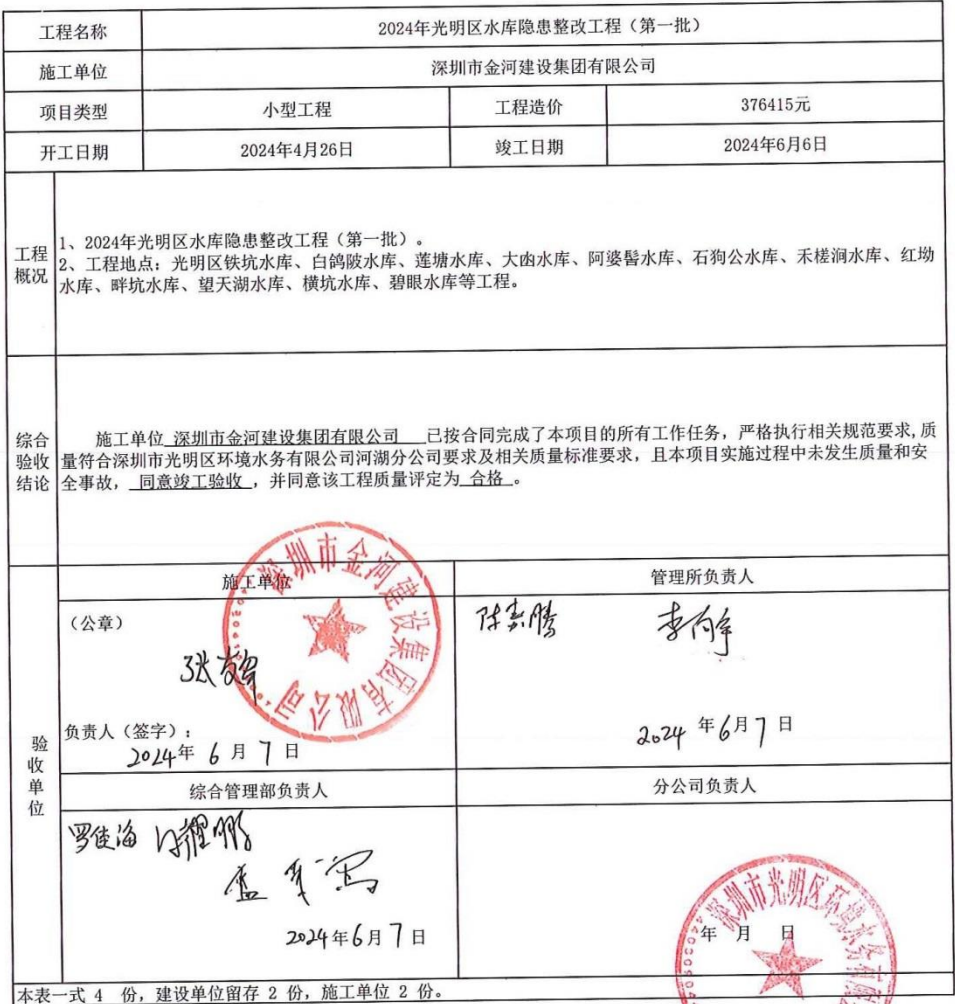 工程名称 2024年光明区水库隐患整改工程（第一批）
施工单位 深圳市金河建设集团有限公司
项目类型 小型工程 工程造价 376415元
开工日期 2024年4月26日 竣工日期 2024年6月6日
工程概况
1、2024年光明区水库隐患整改工程（第一批）。
2、工程地点：光明区铁坑水库、白鸽陂水库、莲塘水库、大凼水库、阿婆髻水库、石狗公水库、禾槎涧水库、红坳
水库、畔坑水库、望天湖水库、横坑水库、碧眼水库等工程。
综合验收结论
施工单位 深圳市金河建设集团有限公司 已按合同完成了本项目的所有工作任务，严格执行相关规范要求，质
量符合深圳市光明区环境水务有限公司河湖分公司要求及相关质量标准要求，且本项目实施过程中未发生质量和安
全事故， 同意竣工验收 ，并同意该工程质量评定为 合格 。
验收单位
施工单位 管理所负责人
（公章）
深圳市金河建设集团有限公司
陈嘉腾
负责人（签字）：
2024年 6 月 7 日 2024 年 6月 7 日
综合管理部负责人 分公司负责人
罗佳海
2024年6月 7 日 年 月 日
深圳市光明区环境水务有限
本表一式 4 份，建设单位留存 2 份，施工单位 2 份。